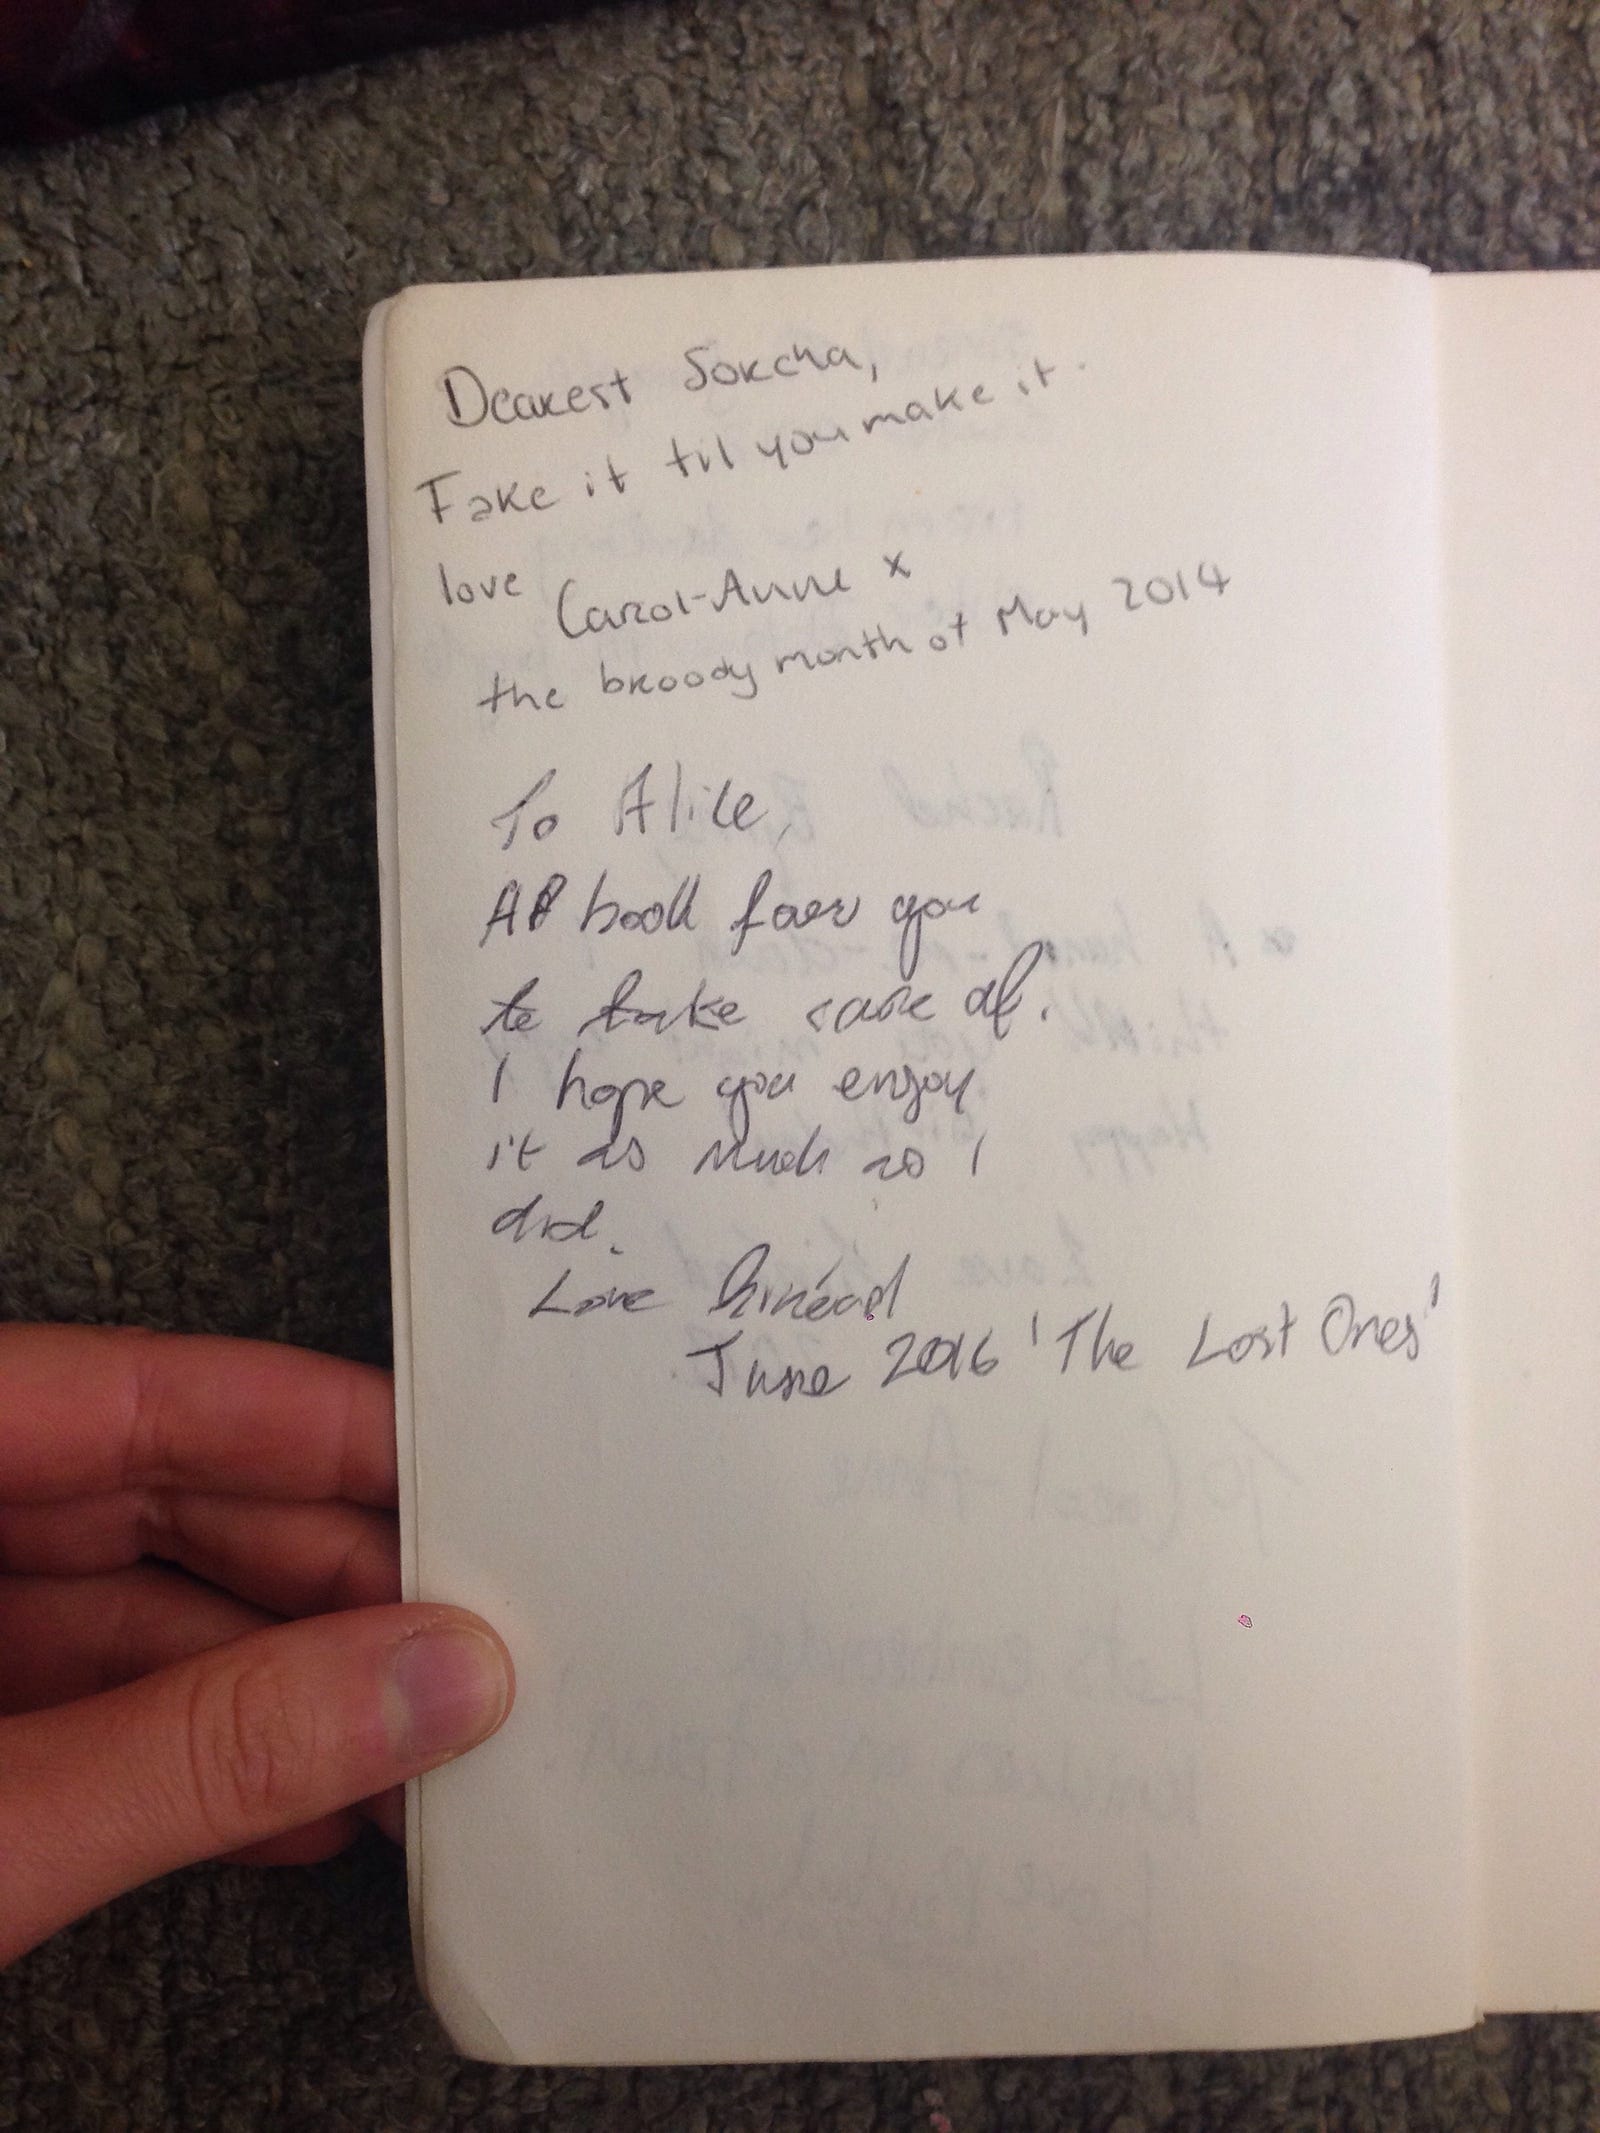 Dearest Sorcha,
Fake it til you make it.
love Carol-Anne x
the broody month of May 2014
To Alice,
A book for you
to take care of.
I hope you enjoy
it as much as I
did.
Love Sinéad
June 2016 'The Lost Ones'